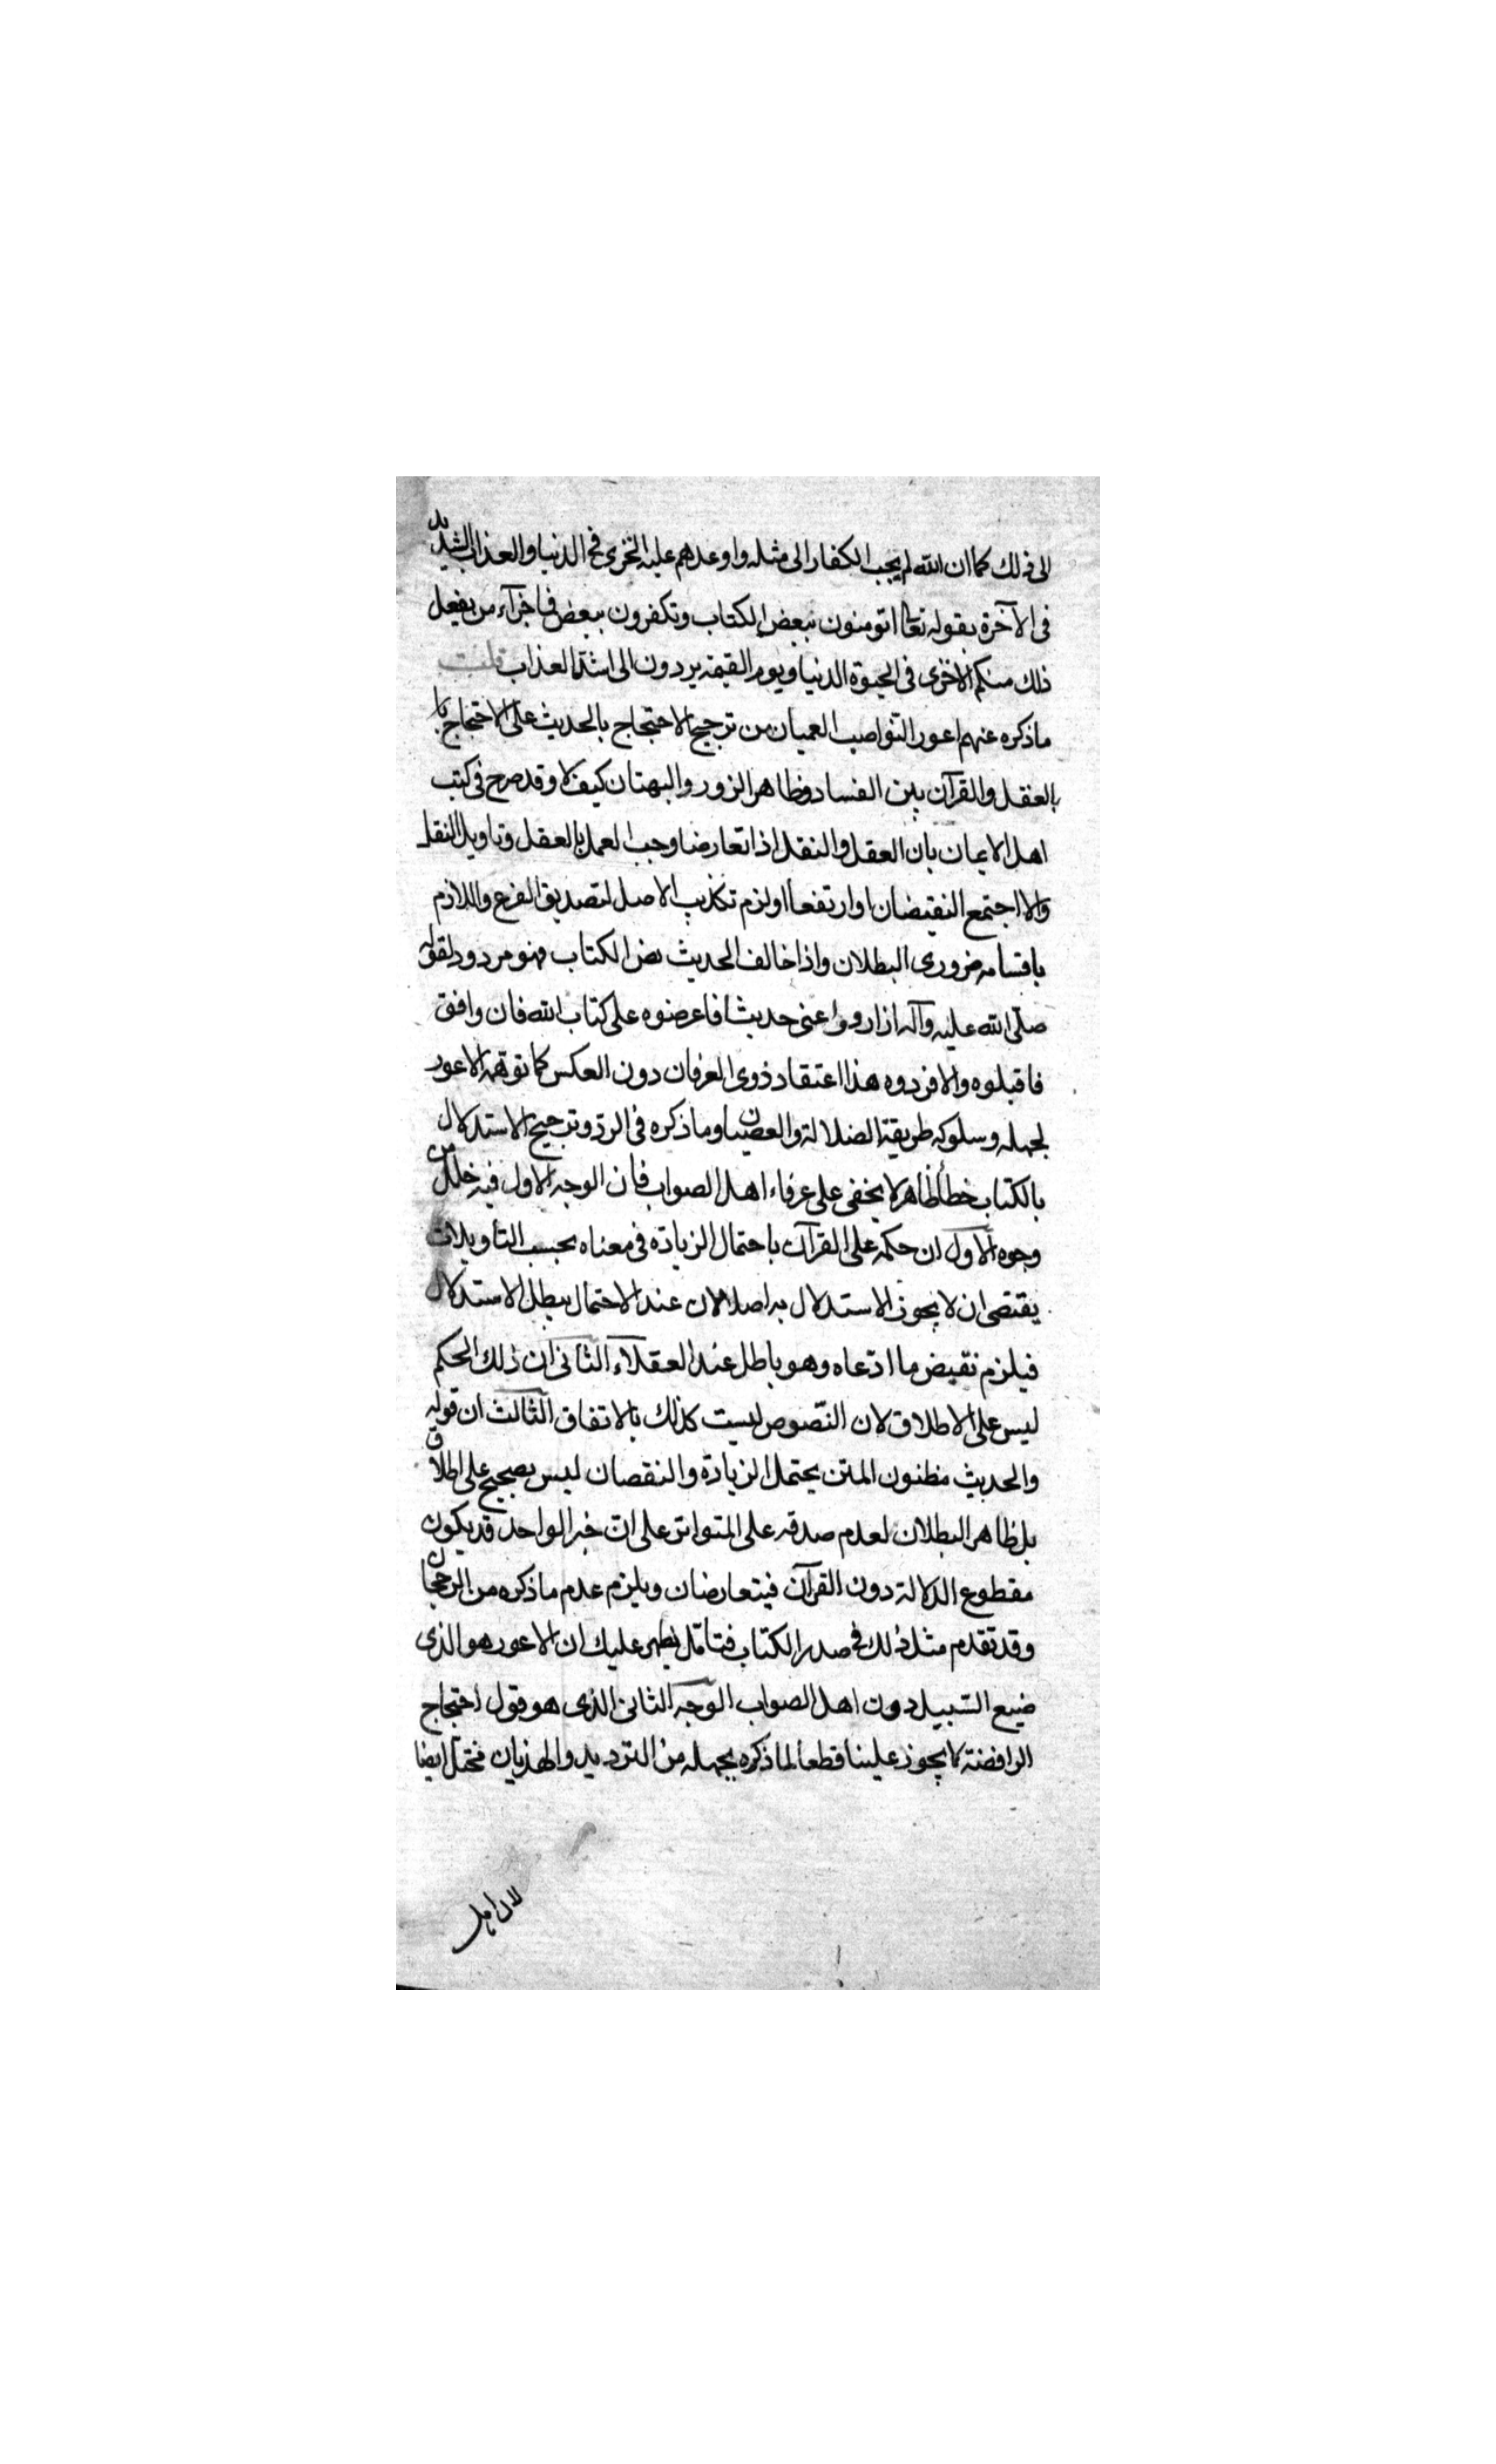 الى ذلك كما ان الله لم يجب الكفار الى مثله واوعدهم عليه الخزى فى الدنيا والعذاب الشديد
فى الآخرة بقوله تعا اتومنون ببعض الكتاب وتكفرون ببعض فما جزآء من يفعل
ذلك منكم الا خزى فى الحيوة الدنيا ويوم القيمة يردون الى اشد العذاب قلت
ماذكره عنهم اعور النواصب العميان من ترجيح الاحتجاج بالحديث على الاحتجاج با
بالعقل والقرآن بين الفساد وظاهر الزور والبهتان كيف لا وقد صرح فى كتب
اهل الايمان بان العقل والنقل اذا تعارضا وجب العمل بالعقل وتاويل النقل
والا اجتمع النقيضان او ارتفعا او لزم تكذيب الاصل لتصديق الفرع واللازم
باقسامه ضرورى البطلان واذا خالف الحديث نص الكتاب فهو مردود لقوله
صلى الله عليه وآله اذا رووا عنى حديثا فاعرضوه على كتاب الله فان وافق
فاقبلوه والا فردوه هذا اعتقاد ذوى العرفان دون العكس كما توهمه الاعور
لجهله وسلوكه طريقة الضلالة والعصيان وما ذكره فى الرد وترجيح الاستدلال
بالكتاب خطأ ظاهر لا يخفى على عرفاء اهل الصواب فان الوجه الاول فيه خلل من
وجوه الاول ان حكمه على القرآن باحتمال الزيادة فى معناه بحسب التأويلات
يقتضى ان لا يجوز الاستدلال به اصلا لان عند الاحتمال يبطل الاستدلال
فيلزم نقيض ما ادعاه وهو باطل عند العقلاء الثانى ان ذلك الحكم
ليس على الاطلاق لان النصوص ليست كذلك بالاتفاق الثالث ان قوله
والحديث مظنون المتن يحتمل الزيادة والنقصان ليس بصحيح على اطلاق
بل ظاهر البطلان لعدم صدقه على المتواتر على ان خبر الواحد قد يكون
مقطوع الدلالة دون القرآن فيتعارضان ويلزم عدم ما ذكره من الرجحان
وقد تقدم مثل ذلك فى صدر الكتاب فتامل يظهر عليك ان الاعور هو الذى
ضيع السبيل دون اهل الصواب الوجه الثانى الذى هو قول احتجاج
الرافضة لا يجوز علينا قطعا لما ذكره بجهله من الترديد والهذيان مختل ايضا
لان اهل